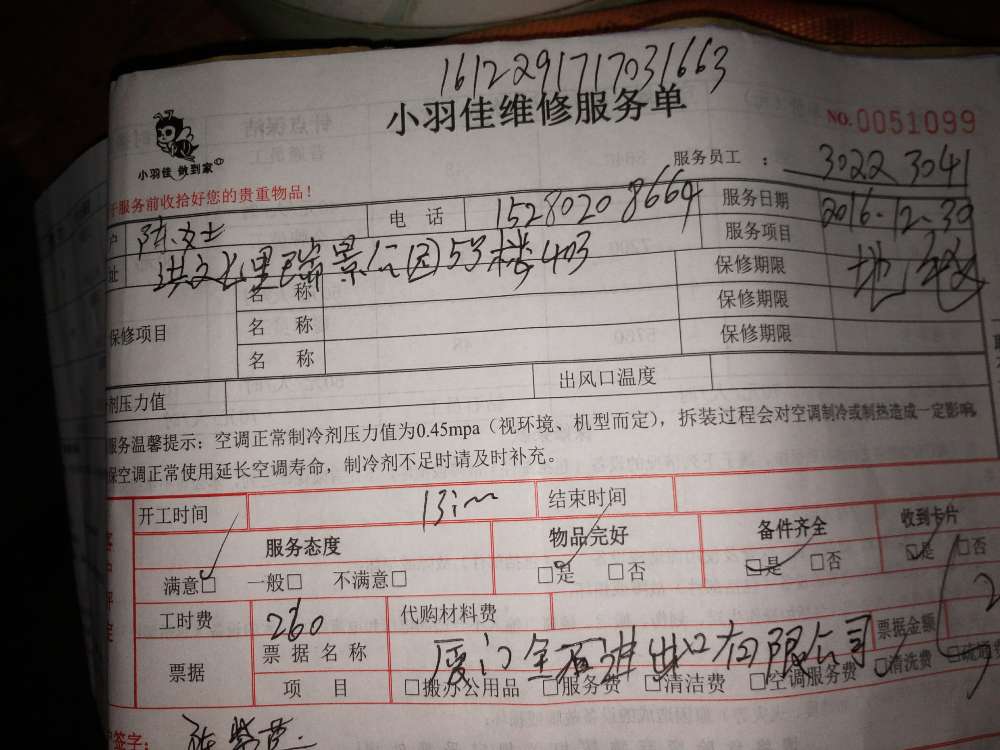 1612291717031663
小羽佳维修服务单
NO.0051099
小羽佳 做到家
服务员工 ： 3022 3041
于服务前收拾好您的贵重物品！
户 陈女士 电 话 15280208664 服务日期 2016.12.30
址 洪文七里瑞景公园53号楼403 服务项目 地毯
保修项目 名 称 保修期限
名 称 保修期限
名 称 保修期限
剂压力值 出风口温度
服务温馨提示：空调正常制冷剂压力值为0.45mpa（视环境、机型而定），拆装过程会对空调制冷或制热造成一定影响
保空调正常使用延长空调寿命，制冷剂不足时请及时补充。
开工时间 结束时间
服务态度 物品完好 备件齐全 收到卡片
满意□ 一般□ 不满意□ □是 □否 □是 □否 □是 □否
工时费 260 代购材料费
票据 票据名称 厦门全石进出口有限公司 票据金额
项 目 □搬办公用品 □服务费 □清洁费 □空调服务费 □清洗费
签字：